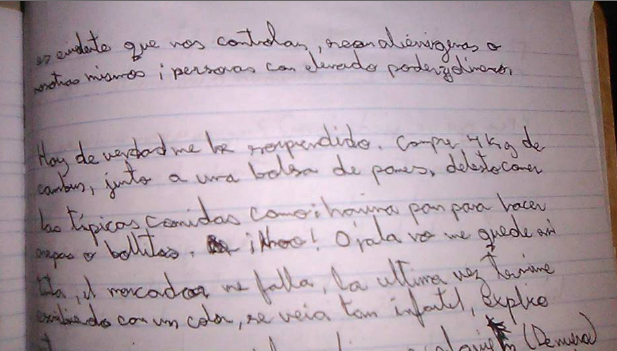 es evidente que nos controlan, sean alienigenas o
nosotros mismos ; personas con elevado poder y dinero,
Hoy de verdad me he sorprendido. Compre 4 Kg de
cambur, junto a una bolsa de panes, detesto comer
las típicas comidas como: harina pan para hacer
arepas o bollitos. ¡Noo! Ojala no me quede sin
tinta, el marcador me falla, la ultima vez termine
escribiendo con un color, se veia tan infatil, explico
(De nuevo)